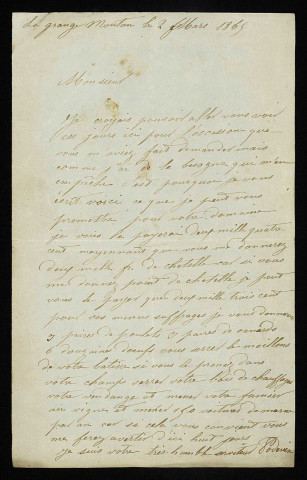 La grange Mouton le 2 Mars 1865
Monsieur
Je croyais pouvoir aller vous voir
ces jours ici pour l'occasion que
vous m'aviez fait demander mais
comme j'ai de la besogne qui m'en
empêche c'est pourquoi je vous
écrit voici ce que je peut vous
promettre pour votre domaine
je vous le payerai deux mille quatre
cent moyennant que vous me donnerez
deux mille fr. de chetelle car si vous
me donnez point de chetelle je peut
vous le payer que deux mille trois cent
pour vos menus suffrages je vous donnerai
3 paires de poulets 3 paires de canards
6 douzaine d'oeufs vous
de votre si vous le prenez dans
votre champs votre bois de chauffage
votre vendange et mener votre fumier
au vigne et mener 150 voitures de marne
par an car si cela vous convient vous
me ferez avertir d'ici huit jours
je suis votre très humble serviteur